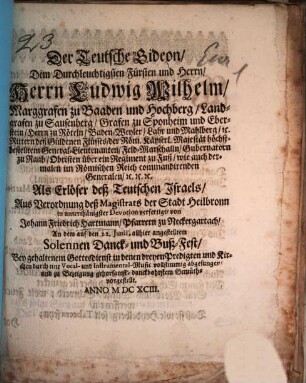 Der Teutsche Gideon/
Dem Durchleuchtigsten Fürsten und Herrn/
Herrn Ludwig Wilhelm/
Marggrafen zu Baaden und Hochberg/ Land-
grafen zu Sausenberg/ Grafen zu Sponheim und Eber-
stein/ Herrn zu Röteln/ Baden-Weyler/ Lahr und Mahlberg/ ꝛc.
Rittern deß Güldenen Flüsses/ der Röm. Käyserl. Majestät höchst-
bestelltem General-Lieutenanten/ Feld-Marschalln/ Gubernatorn
zu Raab/ Obristen über ein Regiment zu Fuß/ wie auch der-
malen im Römischen Reich commandirenden
Generalen/ ꝛc. ꝛc. ꝛc.
Als Erlöser deß Teutschen Israels/
Aus Verordnung deß Magistrats der Stadt Heilbronn
in unterthänigster Devotion verfertiget von
Johann Friedrich Hartmann/ Pfarrern zu Neckergartach/
An dem auf den 22. Junii, allhier angestelltem
Solennen Danck- und Buß-Fest/
Bey gehaltenem Gottesdienst in denen dreyen Predigten und Kir-
chen durch eine Vocal- und Instrumental-Music vollstimmig abgesungen/
und zu Bezeigung gehorsamst-danckbahesten Gemüths
vorgestellt.
ANNO M DC XCIII.